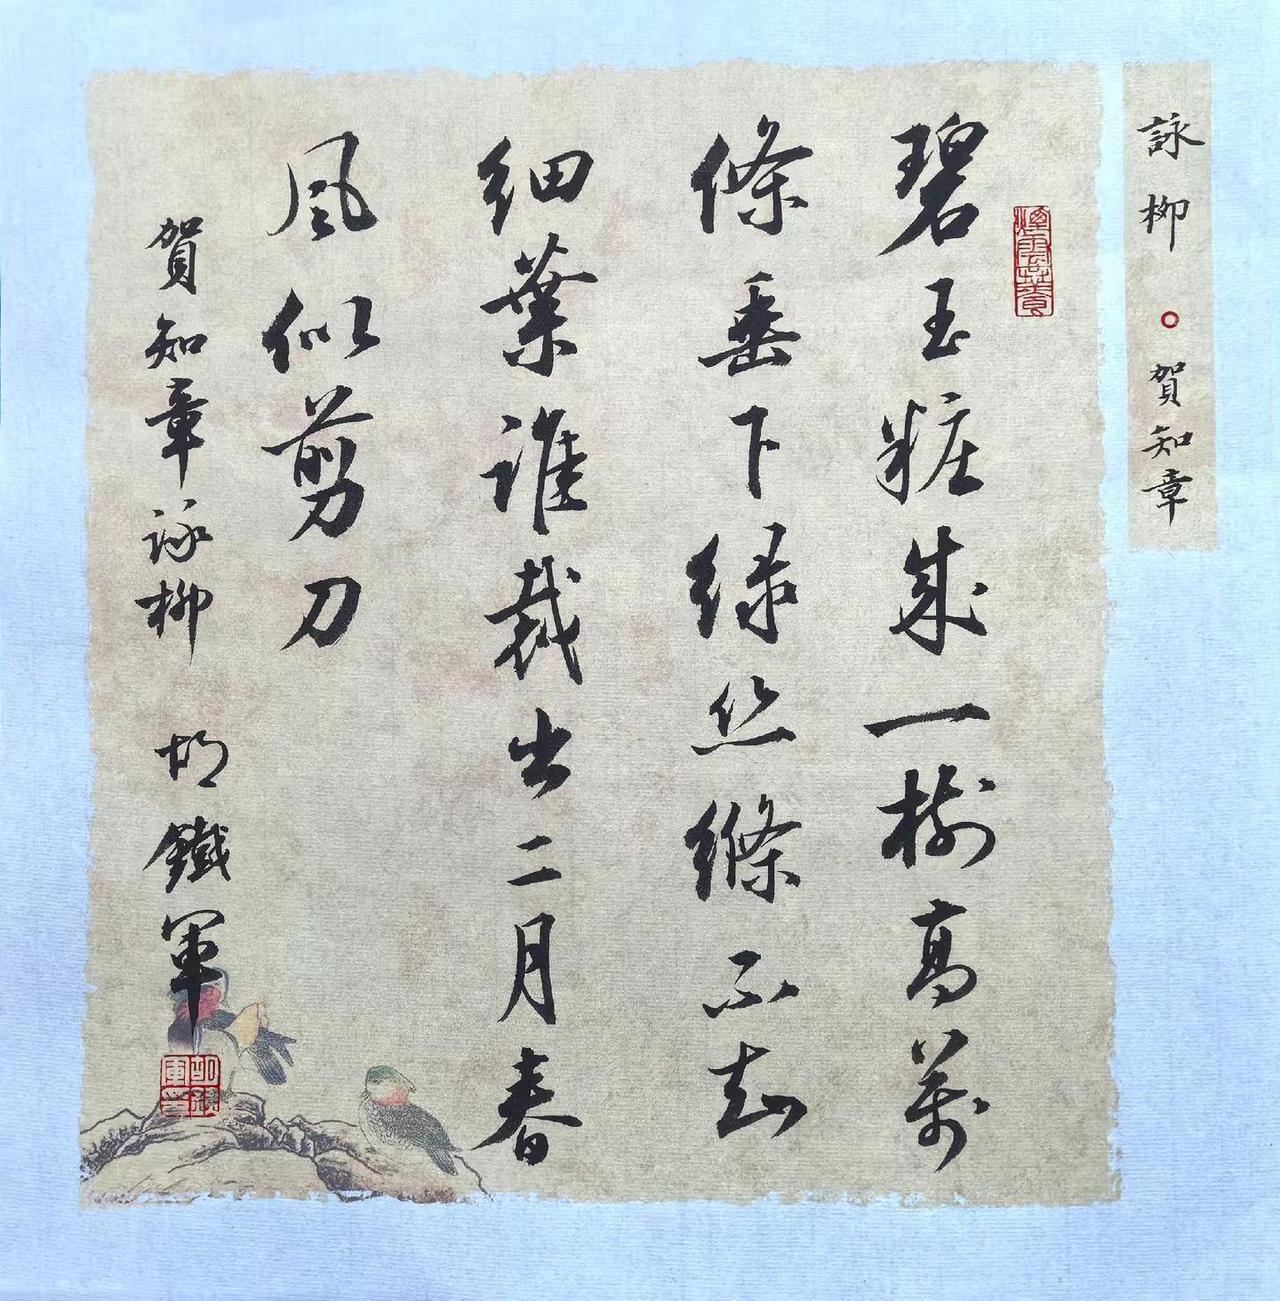 詠柳○賀知章
碧玉粧成一樹高萬
條垂下綠丝絛不知
細葉誰裁出二月春
風似剪刀
賀知章詠柳 胡鐵軍